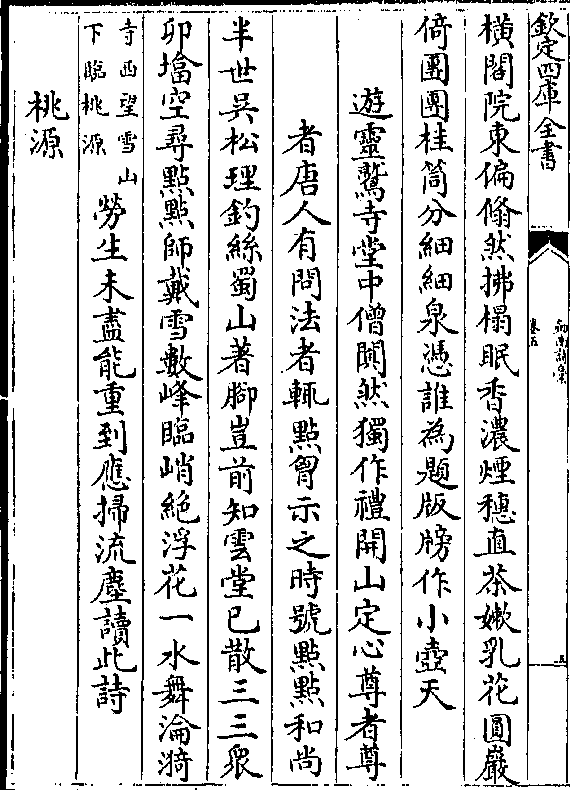 欽定四庫全書
卷五
五
橫閣院東偏翛然拂榻眠香濃煙穗直茶嫰乳花圓巖
倚團團桂筒分細細泉憑誰為題版牓作小壺天
遊靈鷲寺堂中僧闃然獨作禮開山定心尊者尊
者唐人有問法者輒點胷示之時號點點和尚
半世吳松理釣絲蜀山著腳豈前知雲堂已散三三衆
卯塔空尋點點師戴雪數峰臨峭絶浮花一水舞淪漪
寺西望雪山
下臨桃源
勞生未盡能重到應掃流塵讀此詩
桃源